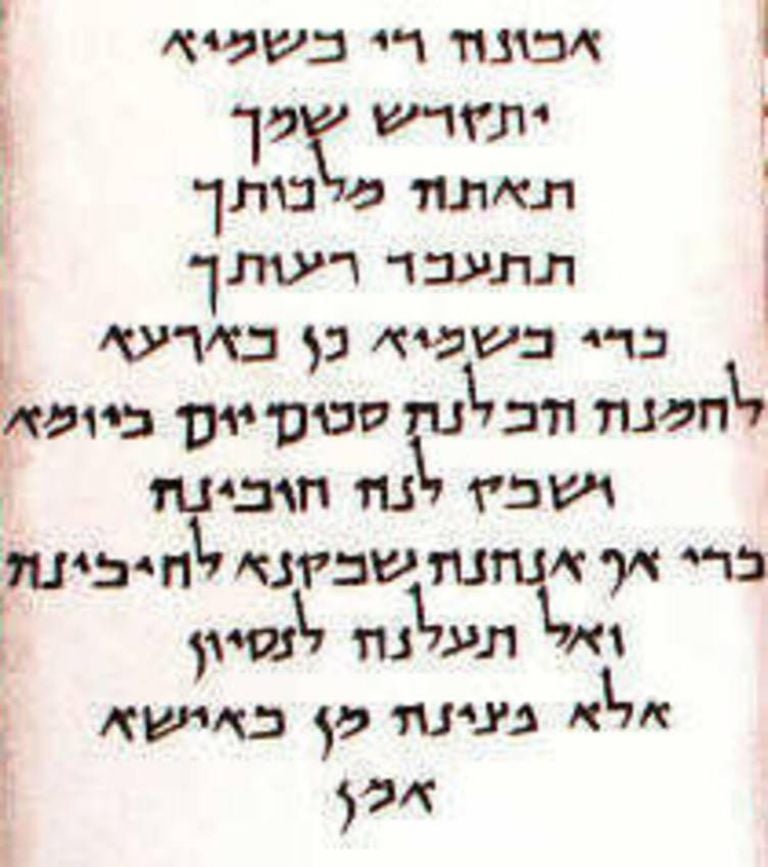 אבונה די בשמיא
יתקדש שמך
תאתה מלכותך
תתעבד רעותך
כדי בשמיא כן בארעא
לחמנה הב לנה סכום יום ביומא
ושבק לנה חובינה
כדי אף אנחנה שבקנא לחיבינה
ואל תעלנה לנסיון
אלא פצינה מן באישא
אמן